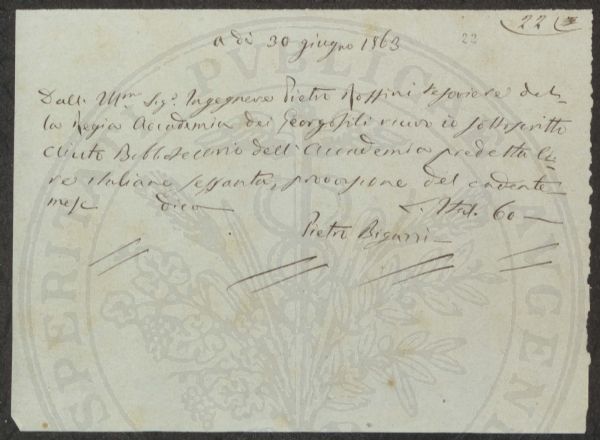 22
22
a dì 30 giugno 1863
Dall' Ill.mo Sig.r Ingegnere Pietro Rossini tesoriere del-
la Regia Accademia dei Georgofili ricevo io sottoscritto
aiuto Bibliotecario dell'Accademia predetta li-
re italiane sessanta, provvisione del cadente
mese dico £. Ital. 60 —
Pietro Bigazzi
PVBLICA
PROSPERITA
AVGENDA